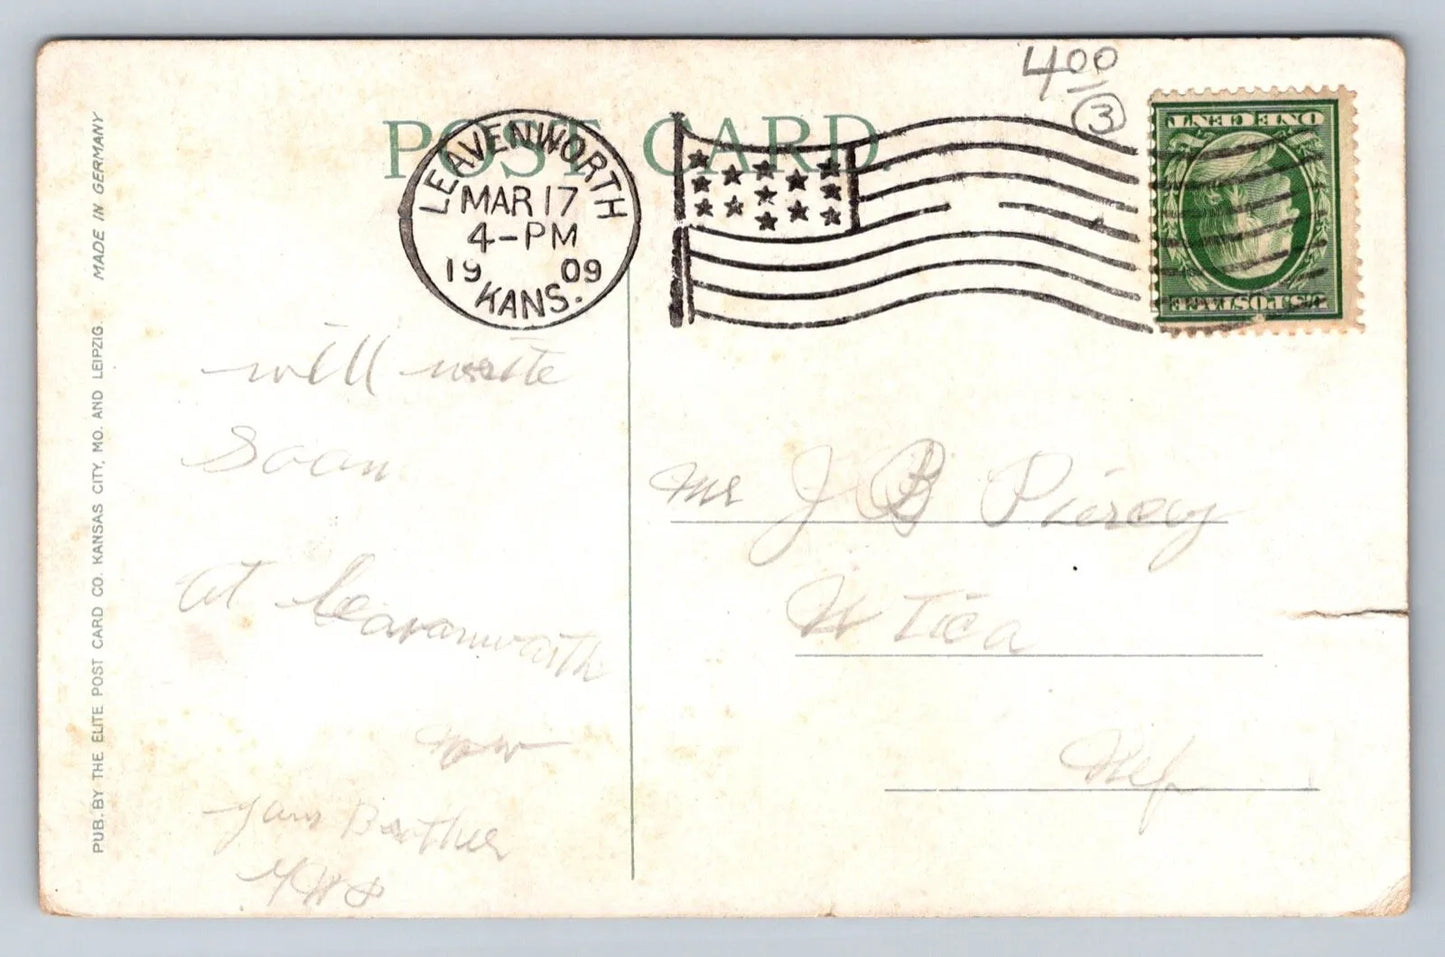 400
3
POST CARD.
LEAVENWORTH
MAR 17
4-PM
1909
KANS.
ONE CENT
U.S. POSTAGE
MADE IN GERMANY
PUB. BY THE ELITE POST CARD CO. KANSAS CITY, MO. AND LEIPZIG.
will write
Soon
at Leavanworth
now
your Brother
Mr J B Piercy
Utica
Neb